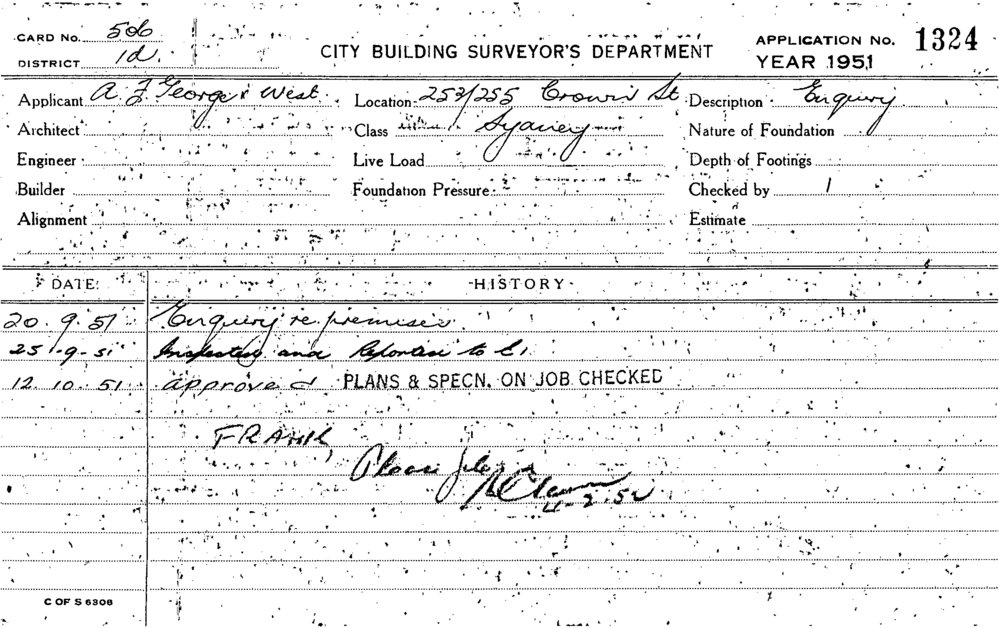 CARD No. 506
DISTRICT 1d.
CITY BUILDING SURVEYOR'S DEPARTMENT
APPLICATION No. 1324
YEAR 1951
Applicant A. F. George & West. Location 253/255 Crown St Description Enquiry
Architect Class Sydney Nature of Foundation
Engineer Live Load Depth of Footings
Builder Foundation Pressure Checked by
Alignment Estimate
DATE: HISTORY
20.9.51 Enquiry re premises
25.9.51 Inspected and Reported to
12.10.51 approved PLANS & SPECN. ON JOB CHECKED
FRANK,
Please file
4-2-52
C OF S 6306